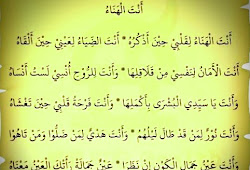 أَنْتَ الْهَنَاءُ
أَنْتَ الْهَنَاءُ لِقَلْبِيْ حِيْنَ أَذْكُرُهُ * أَنْتَ الضِّيَاءُ لِعَيْنِيْ حِيْنَ أَلْقَاهُ
أَنْتَ الْأَمَانُ لِنَفْسِيْ مِنْ قَلَاقِلِهَا * وَأَنْتَ لِلرُّوْحِ أُنْسِيْ لَسْتُ أَنْسَاهُ
وَأَنْتَ يَا سَيِّدِي الْبُشْرَى بِأَكْمَلِهَا * وَأَنْتَ فَرْحَةُ قَلْبِيْ حِيْنَ تَغْشَاهُ
وَأَنْتَ نُوْرٌ لِمَنْ قَدْ طَالَ لَيْلُهُمْ * وَأَنْتَ هَدْيٌ لِمَنْ ضَلُّوْا وَمَنْ تَاهُوْا
وَأَنْتَ عَيْنُ جَمَالِ الْكَوْنِ إِنْ نَظَرَا * عَيْنٌ جَمَالَهُ رَأَتْكَ الْعَيْنُ